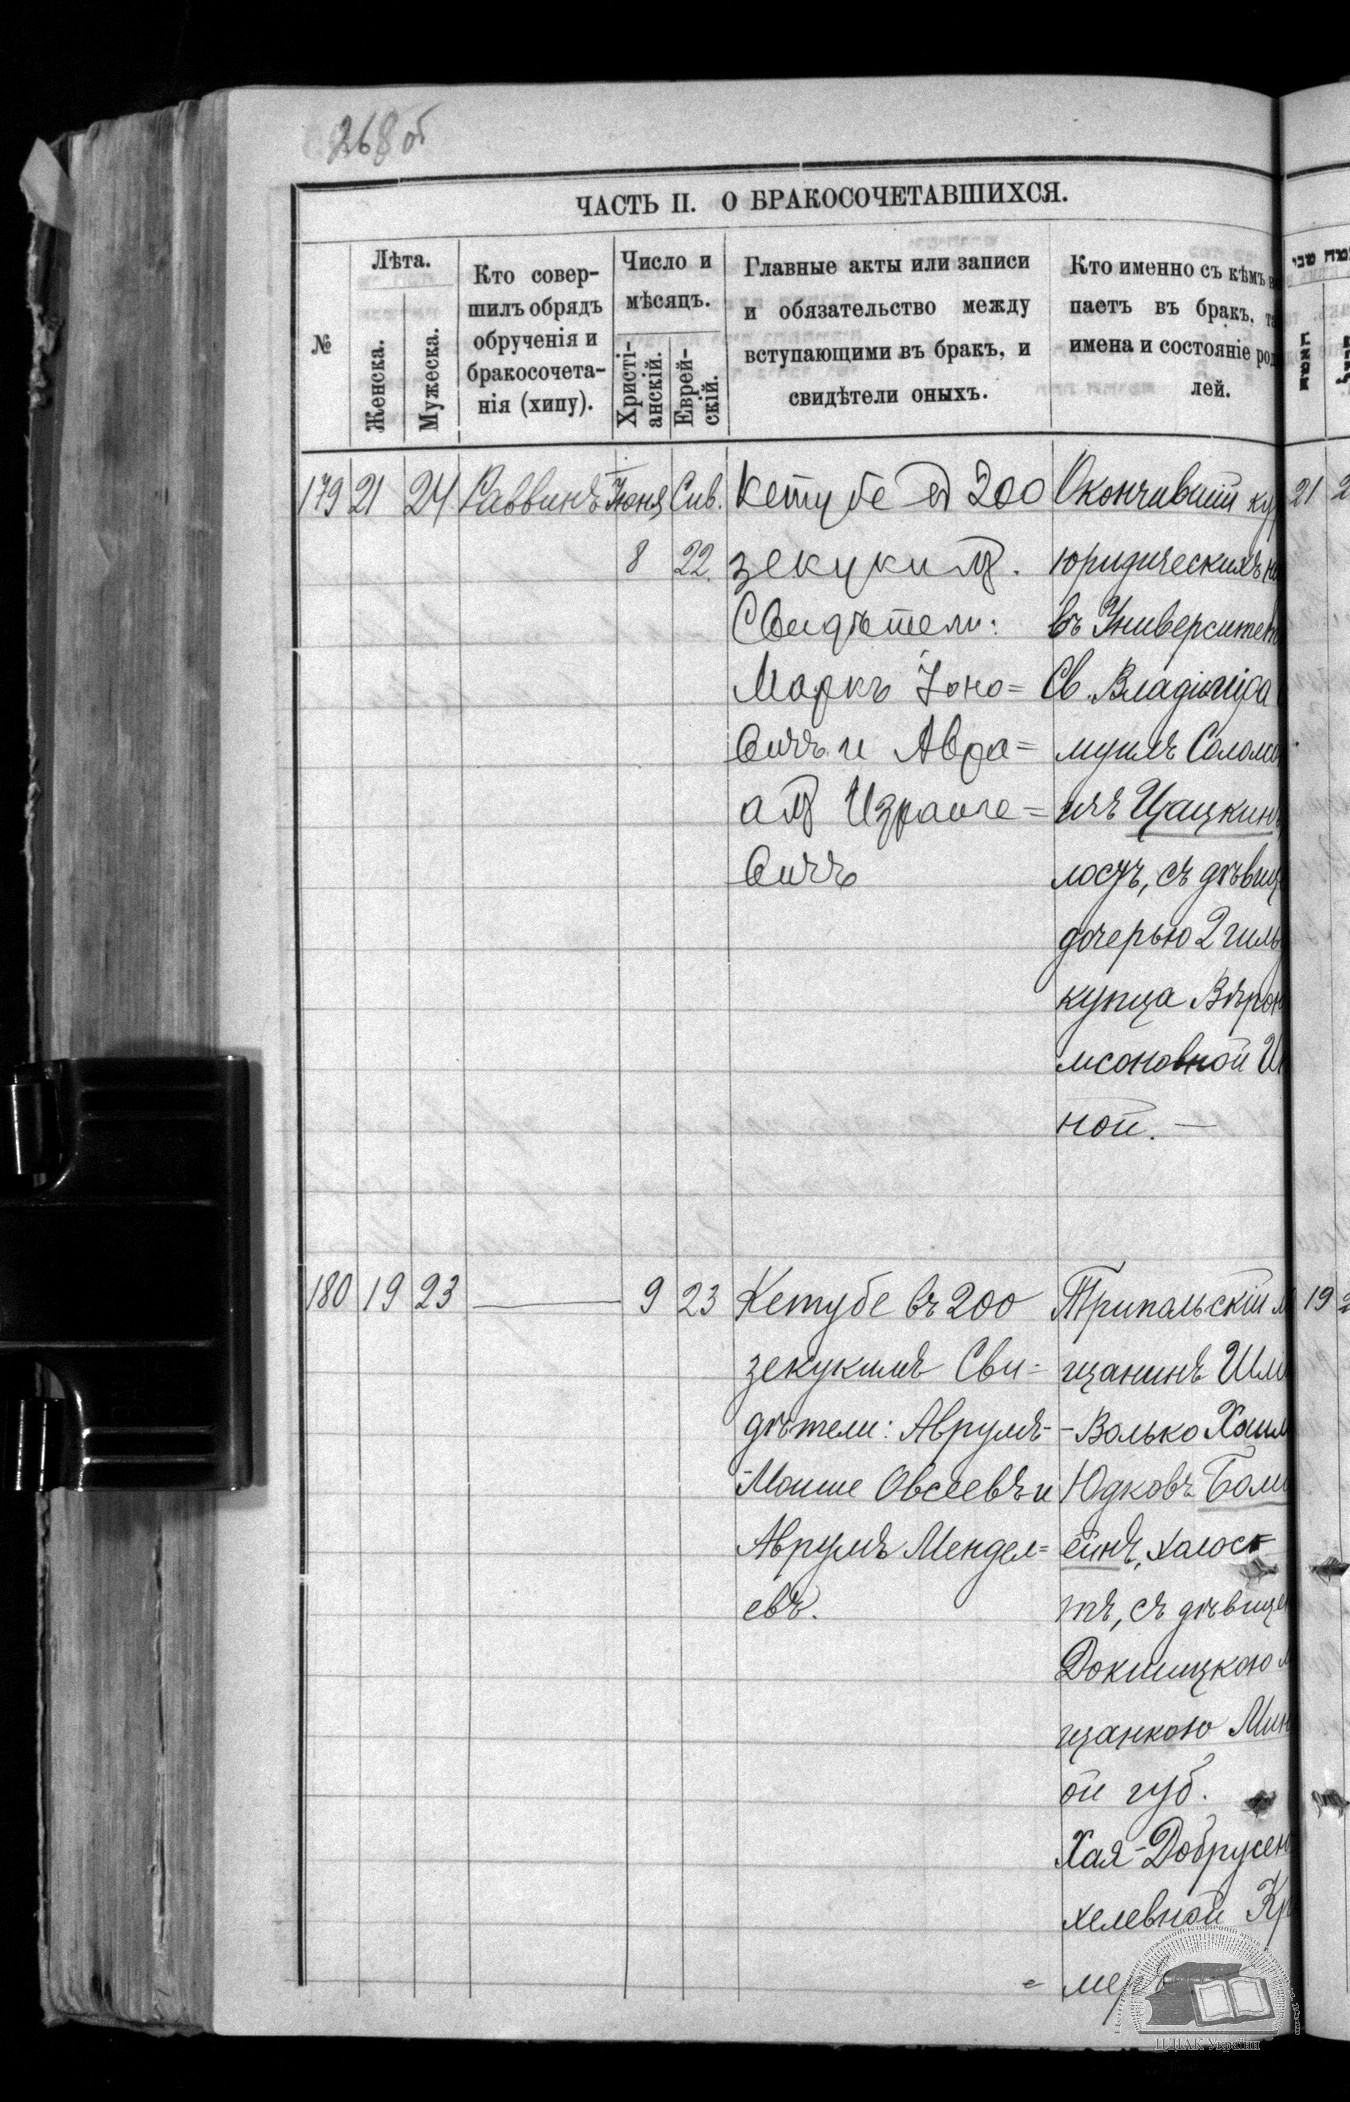 268 об
ЧАСТЬ II. О БРАКОСОЧЕТАВШИХСЯ.
№
Лѣта.
Женска.
Мужеска.
Кто совер-
шилъ обрядъ
обрученія и
бракосочета-
нія (хипу).
Число и
мѣсяцъ.
Христі-
анскій.
Еврей-
скій.
Главные акты или записи
и обязательство между
вступающими въ бракъ, и
свидѣтели оныхъ.
Кто именно съ кѣмъ
паетъ въ бракъ,
имена и состояніе
лей.
179 21 24 Раввинъ Іюня Сив.
8 22.
Кетубе въ 200
зекукимъ.
Свидѣтели:
Маркъ Іоно=
вичъ и Авра=
амъ Израиле=
вичъ
Окончившій кур
юридическихъ на
въ Университет
Св. Владиміра
муилъ Соломо
ичъ Цацкинъ
лостъ, съ дѣвиц
дочерью 2 гиль
купца Вѣрою
мсоновной
ной. —
180 19 23 — 9 23
Кетубе въ 200
зекукимъ Сви-
дѣтели: Аврумъ-
-Моише Овсеевъ и
Аврумъ Мендел=
евъ.
Трипольскій м
щанинъ Шм
-Волько Хаим
Юдковъ Бом
ейнъ, холос
тъ, съ дѣвице
Докшицкою м
щанкою Мин
ой губ.
Хая-Добрусею
хелевной Кр
мер
19
21
ЦДІАК України